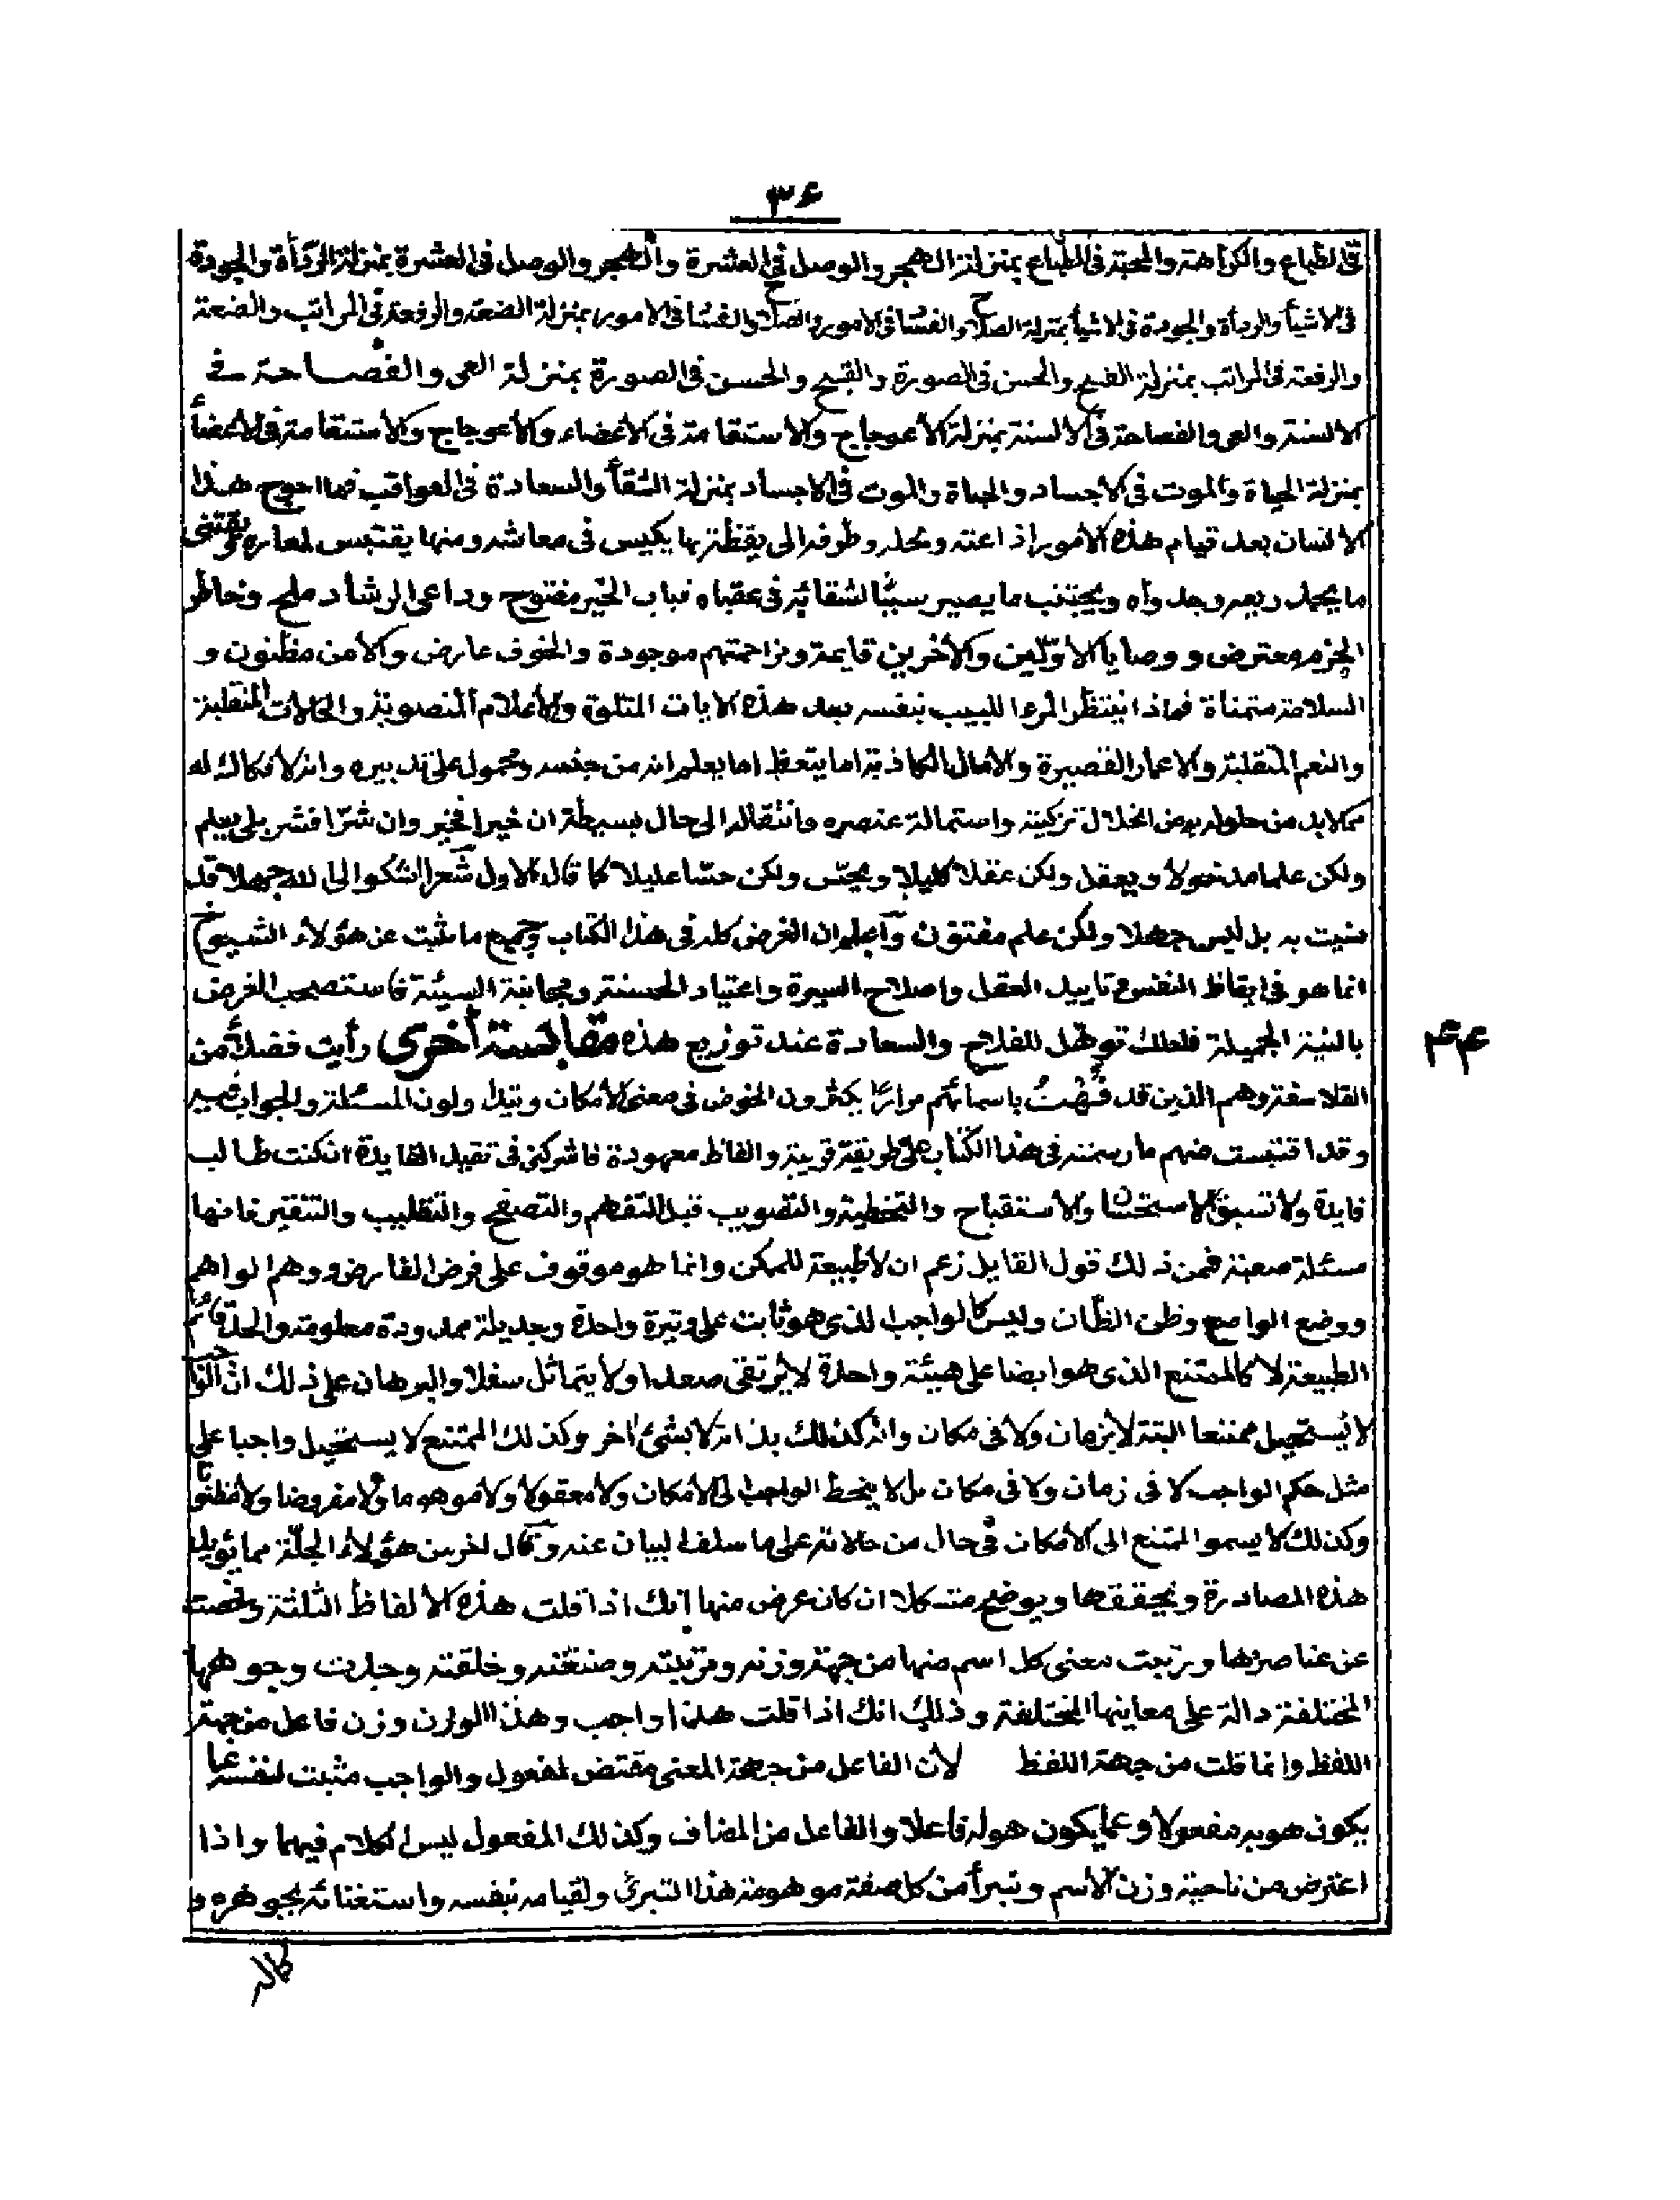 ٣۶
فى الطباع والكراهة والمحبة فى الطباع بمنزلة الهجر والوصل فى العشرة والهجر والوصل فى العشرة بمنزلة الرداأة والجودة
فى الاشيأ والردأة والجودة فى الاشيأ بمنزلة الصلاح والفسا فى الامور والصلاح والفسا فى الامور بمنزلة الضعة والرفعة فى المراتب والضعة
والرفعة فى المراتب بمنزلة القبح والحسن فى الصورة والقبح والحسن فى الصورة بمنزلة العى والفصاحة فى
الالسنة والعى والفصاحة فى الالسنة بمنزلة الأعوجاج والاستقامة فى الأعضاء والأعوجاج والأستقامة فى الأعضأ
بمنزلة الحياة والموت فى الاجساد والحياة والموت فى الاجساد بمنزلة الشقأ والسعادة فى العواقب فما احوج هذا
الانسان بعد قيام هذه الأمور اذا عنه وطوفه الى يقظة بها يكيس فى معاشه ومنها يقتبس لمعاده ويقتنى
ما يجد ويجتنب ما يصير سببًا لشقائه فى عقباه فباب الخير مفتوح وداعى الرشاد ملح وخاطر
الجزم معترض و ووصايا الاوّلين والأخرين قايمة ومزاحمتهم موجودة والخوف عارض والأمن مظنون و
السلامة متمناة فماذا ينتظر المرء اللبيب بنفسه بعد هذه الايات المتلوة والأعلام المنصوبة والحالات المنقلبة
والنعم المتقلبة والاعمار القصيرة والأمال الكاذبة اما يتعظ اما يعلم انه من جنسه ومحمول على تدبيره وانه لا فكاك له
مما لابد من حلوله به من انحلال تركيبه واستمالة عنصره وانتقاله الى حال بسيطة ان خيرا فخير وان شرّا فشر بلى يعلم
ولكن علما مدخولا ويعقل ولكن عقلا كليلا ويحسّ ولكن حسّا عليلا كما قال الاول شعر اشكوا الى الله جهلا قد
منيت به بل ليس جهلا ولكن علم مفتون واعلم ان الغرض كله فى هذا الكتاب وجميع ما ثبت عن هؤلاء الشيوخ
انما هو فى ايقاظ النفس وتاييد العقل واصلاح السيرة واعتياد الحسنة ومجانبة السيئة فاستصحب الغرض
بالنية الجميلة فلعلك توهل للفلاح والسعادة عند توزيع هذه مقابسة أخرى رأيت فضلأ من
الفلاسفة وهم الذين قد باسمائهم مرارًا يكثرون الخوض فى معنى الأمكان
وقد اقتبست منهم ما رسمته فى هذا الكتاب على طريقة قريبة والفاظ معهودة فاشركنى فى تقبل الفايدة ان كنت طالب
فايدة ولا تسبق الاستحسان والاستقباح والتخطية والتصويب قبل التفهم والتصفح والتقليب والتنقير فانها
مسئلة صعبة فمن ذلك قول القايل زعم ان لا طبيعة للممكن وانما هو موقوف على فرض الفارض ووهم الواهم
ووضع الواضع وظن الظان وليس كالواجب الذى هو ثابت على وتيرة واحدة وجديلة ممدودة معلومة والحد قائم
الطبيعة لا كالممتنع الذى هو ايضا على هيئة واحدة لا يرتقى صعدا ولا يتماثل سفلا والبرهان على ذلك ان الواجب
لا يستحيل ممتنعا البتة لا بزمان ولا فى مكان وانه كذلك بذاته لا بشئ اخر وكذلك الممتنع لا يستحيل واجبا على
مثل حكم الواجب لا فى زمان ولا فى مكان بل لا ينحط الواجب الى الأمكان ولا معقولا ولا موهوما ولا مفروضا ولا مظنونا
وكذلك لا يسموا الممتنع الى الأمكان فى حال من حالاته على ما سلف البيان عنه وقال اخر من هؤلاء الجلّة مما يؤيد
هذه المصادرة ويحققها ويوضح ان كان عرض منها انك اذا قلت هذه الالفاظ الثلثة وفحصت
عن عناصرها ورتبت معنى كل اسم منها من جهة وزنه ومرتبته وصنعته وخلقته وجدت وجوهها
المختلفة دالة على معاينها المختلفة وذلك انك اذا قلت هذا واجب وهذا الوزن وزن فاعل من جهة
اللفظ وانما قلت من جهة اللفظ لأن الفاعل من جهة المعنى مقتض لمفعول والواجب مثبت لنفسه عما
يكون هو به مفعولا وعما يكون هو له فاعلا والفاعل من المضاف وكذلك المفعول ليس الكلام فيهما واذا
اعترض من ناحية وزن الأسم وتبرأ من كل صفة موهومة هذا التبرئ ولقيامه بنفسه واستغنائه بجوهره و
كماله
۴۴